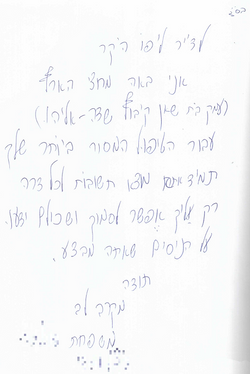 בס"ד
לד"ר ליפו היקר
אני באה מחצי הארץ
(עמק בית שאן קיבוץ שדה-אליהו.)
עבור הטיפול המסור ביותר שלך
תמיד אתם מצאו תשובות לכל דרה
רק עליך אפשר לסמוך ושכולם ידעו.
על ניסים שאתה מבצע.
תודה
מקרב לב
משפחת